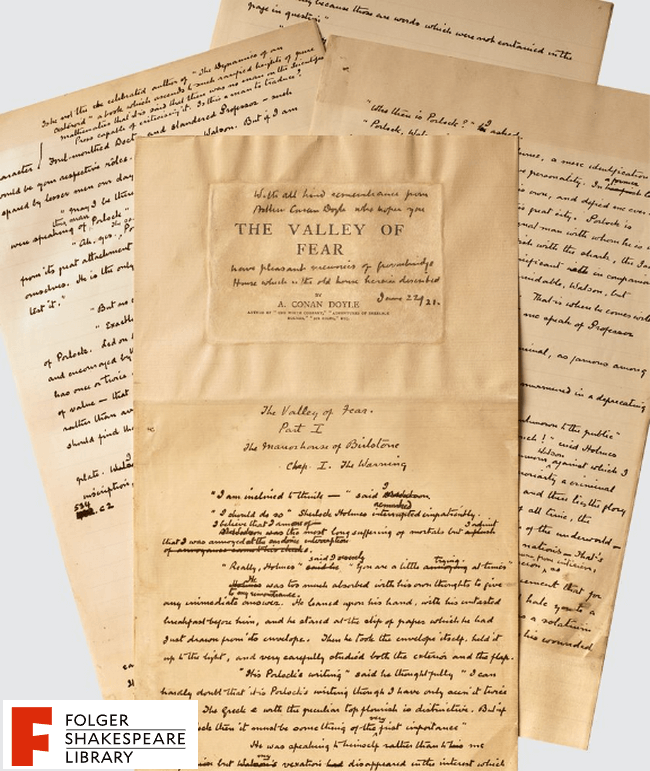 ly because those are words which were not contained in the
page in question"
Is he not the celebrated author of "The Dynamics of an
Asteroid" a book which ascends to such rarified heights of pure
mathematics that it is said that there was no man in the Scientific
Press capable of criticising it. Is this a man to traduce?
Foul-mouthed Doctor and slandered Professor - such
would be your respective roles.
Watson. But if I am
spared by lesser men our day
"May I be there
were speaking of this man Porlock"
"Ah, yes,
from its great attachment
ourselves. He is the only
test it."
"But no
"Exactly
of Porlock. Led on
and encouraged by
has once or twice
of value - that
rather than
should find the
plate.
inscription,
534
C2
"Who then is Porlock?" I asked
"Porlock,
a mere identification
personality. In a former
own, and defied me ever
great city. Porlock is
man with whom he is
with the shark, the
significant in companion
formidable, Watson, but
That is where he comes with
me speak of Professor
criminal, as famous among
murmured in a deprecating
unknown to the public"
cried Holmes
Watson
against which I
Moriarty a criminal
and there lies the glory
of all time, the
of the underworld -
nations - That's
from criticism,
that for
hale you to a
as a solatium
his wounded
With all kind remembrance from
Arthur Conan Doyle who hopes you
THE VALLEY OF
FEAR
have pleasant memories of Groombridge
House which is the old house herein described
BY
A. CONAN DOYLE
June 22/21.
AUTHOR OF "THE WHITE COMPANY," "ADVENTURES OF SHERLOCK
HOLMES," "SIR NIGEL," ETC.
The Valley of Fear.
Part I
The Manor house of Birlstone
Chap. I. The Warning
"I am inclined to think - " said I
"I should do so" Sherlock Holmes remarked interrupted impatiently.
I believe that I am one of
was the most long suffering of mortals but I admit
that I was annoyed at the sardonic interruption
of annoyance
"Really, Holmes" said I severely said he "You are a little trying annoying at times"
Holmes He was too much absorbed with his own thoughts to give
to my remonstrance.
any immediate answer. He leaned upon his hand, with his untasted
breakfast before him, and he stared at the slip of paper which he had
just drawn from its envelope. Then he took the envelope itself, held it
up to the light, and very carefully studied both the exterior and the flap.
"It is Porlock's writing" said he thoughtfully "I can
hardly doubt that it is Porlock's writing though I have only seen it twice
The Greek e with the peculiar top flourish is distinctive. But if
then it must be something of the very first importance"
He was speaking to himself rather than to his me
but my Watson's vexation had disappeared in the interest which
FOLGER
SHAKESPEARE
LIBRARY